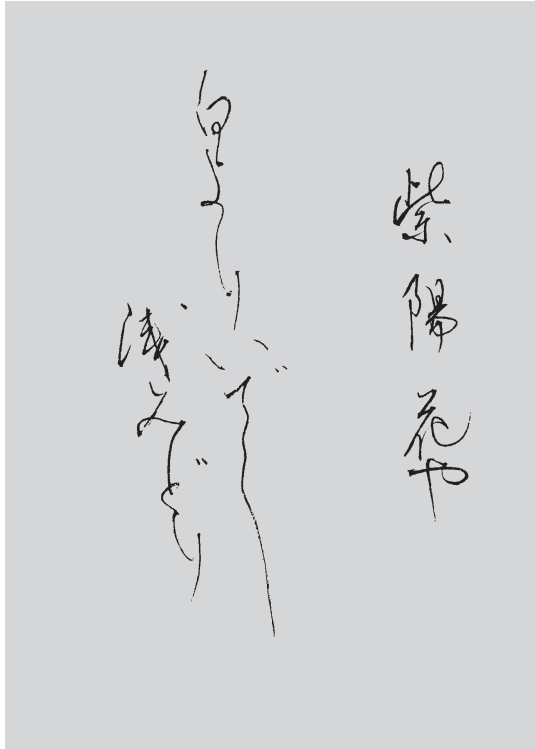 紫陽花や
白よりいでし
浅みどり